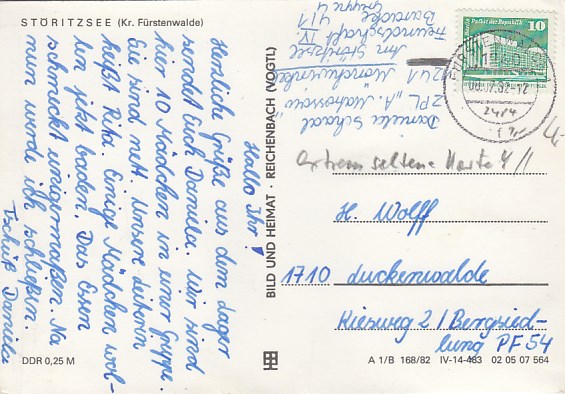 STÖRITZSEE (Kr. Fürstenwalde)
Hallo Ihr!
Herzliche Grüße aus dem Lager
sendet Euch Daniela. Wir sind
hier 10 Mädchen in einer Gruppe.
Sie sind nett. Unsere Leiterin
heißt Rita. Einige Mädchen wol-
len jetzt baden. Das Essen
schmeckt einigermaßen. Na
nun werde ich schließen.
Tschüß Daniela
DDR 0,25 M
BILD UND HEIMAT · REICHENBACH (VOGTL)
Daniela Schaal
ZPL „A. Matrossow"
1241
Am Störitzsee
Freundschaft IV
Baracke 4/1
Gruppe 4
Palast der Republik 10
DDR
06.07.82-12
extrem seltene Karte
H. Wolff
1710 Luckenwalde
Kiesweg 2 / Bergsied-
lung PF 54
A 1/B 168/82 IV-14-483 02 05 07 564